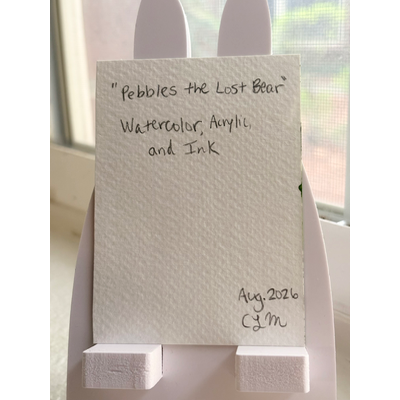 "Pebbles the Lost Bear"
Watercolor, Acrylic,
and Ink
Aug. 2026
CLM